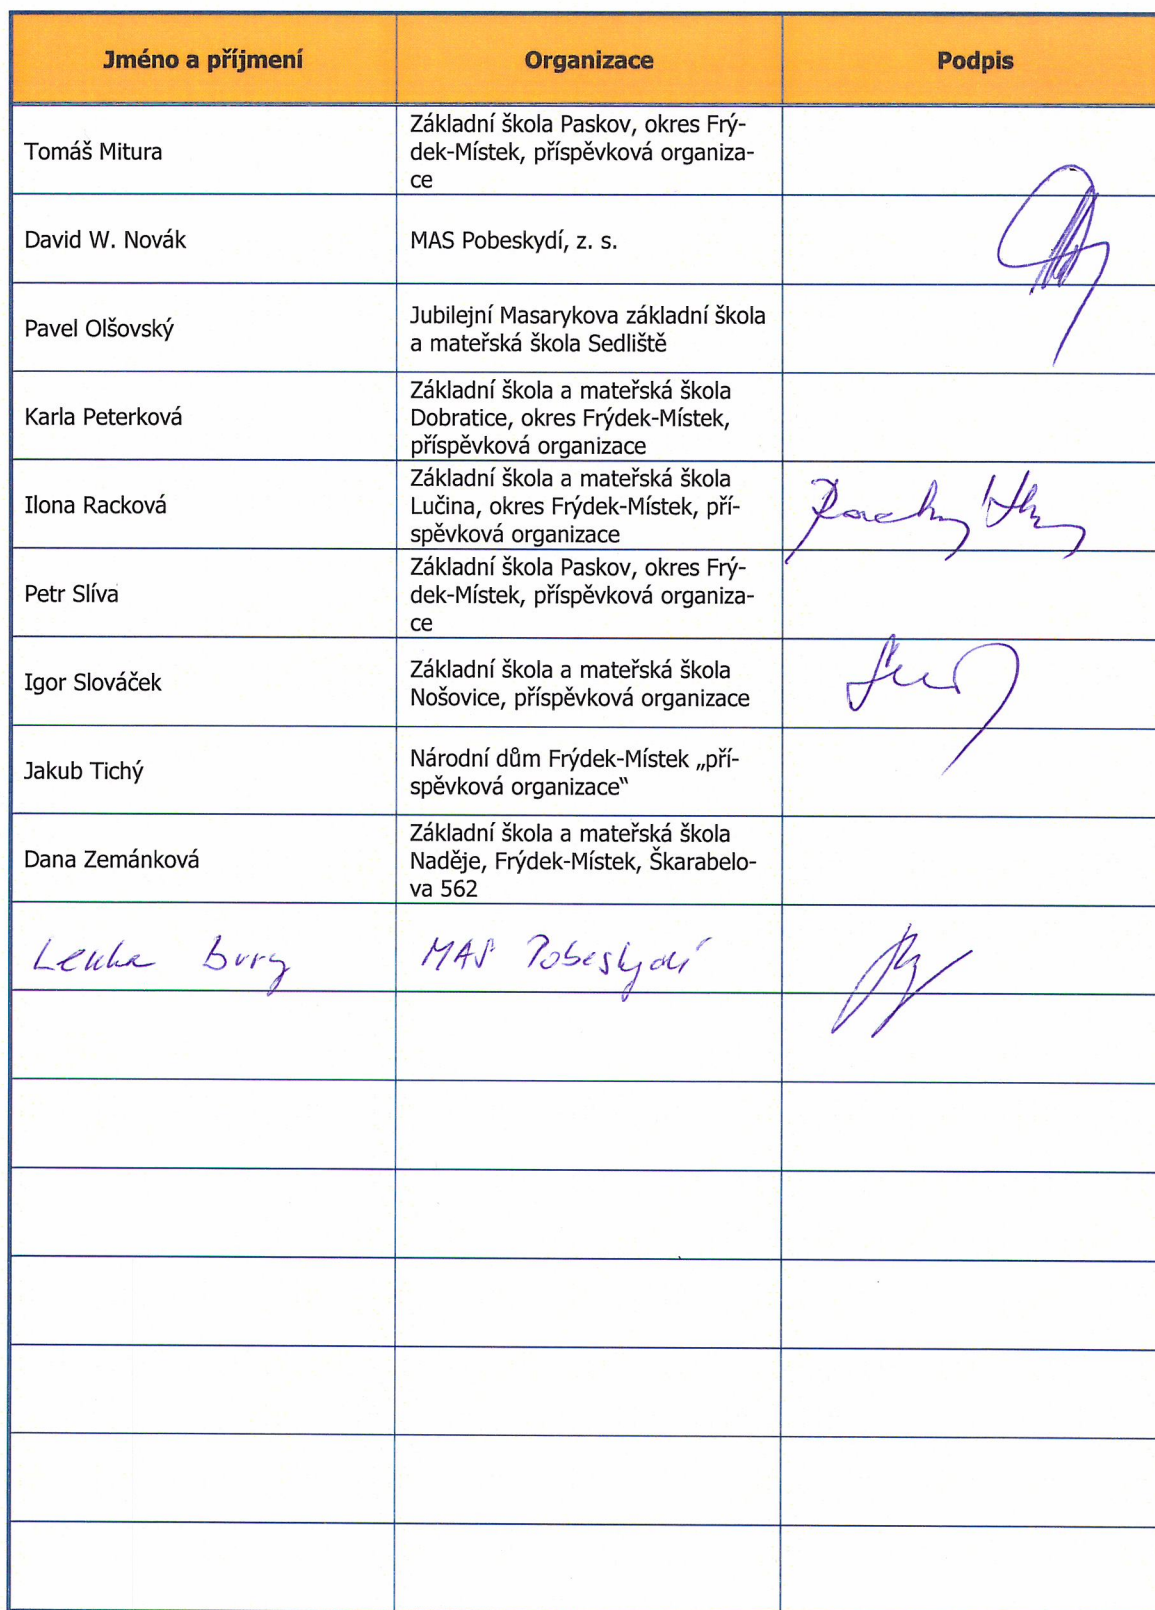 Jméno a příjmení Organizace Podpis
Tomáš Mitura
Základní škola Paskov, okres Frý-
dek-Místek, příspěvková organiza-
ce
David W. Novák
MAS Pobeskydí, z. s.
Pavel Olšovský
Jubilejní Masarykova základní škola
a mateřská škola Sedliště
Karla Peterková
Základní škola a mateřská škola
Dobratice, okres Frýdek-Místek,
příspěvková organizace
Ilona Racková
Základní škola a mateřská škola
Lučina, okres Frýdek-Místek, pří-
spěvková organizace
Petr Slíva
Základní škola Paskov, okres Frý-
dek-Místek, příspěvková organiza-
ce
Igor Slováček
Základní škola a mateřská škola
Nošovice, příspěvková organizace
Jakub Tichý
Národní dům Frýdek-Místek „pří-
spěvková organizace“
Dana Zemánková
Základní škola a mateřská škola
Naděje, Frýdek-Místek, Škarabelo-
va 562
Lenka
MAS Pobeskydí